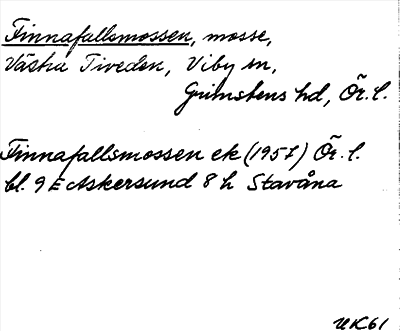 Finnafallsmossen, mosse,
Västra Tiveden, Viby sn,
Grimstens hd, Ör. l.
Finnafallsmossen ek (1957) Ör. l.
bl. 9 E Askersund 8 h Stavåna
UK61